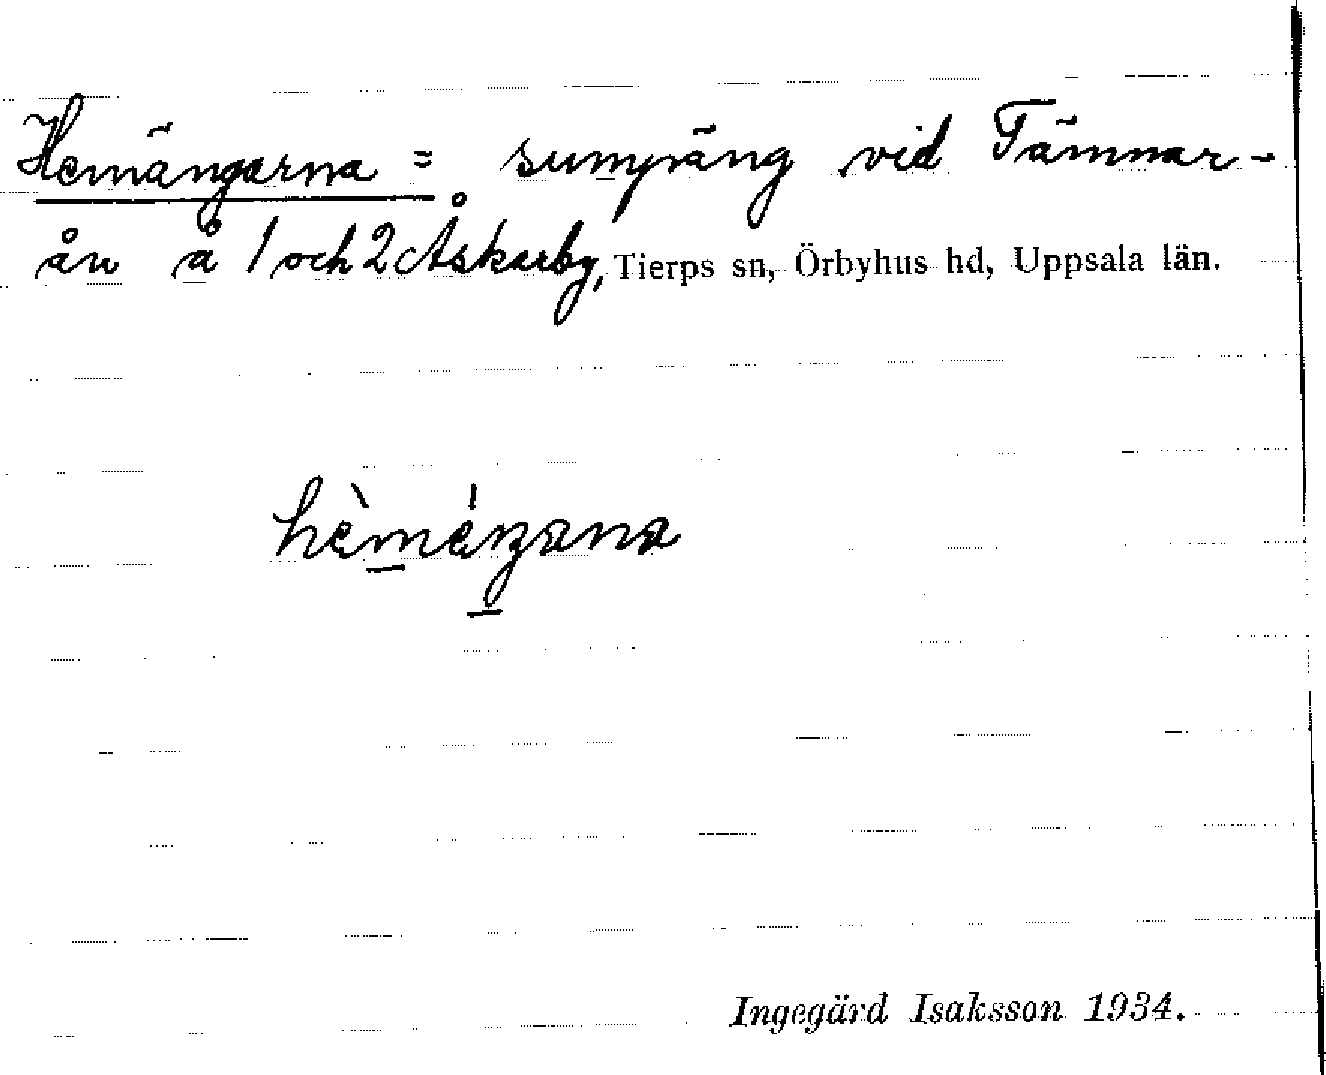 Hemängarna = sumpäng vid Tämnar-
ån å 1 och 2 Åskarby, Tierps sn, Örbyhus hd, Uppsala län.
hèméŋana
Ingegärd Isaksson 1934.